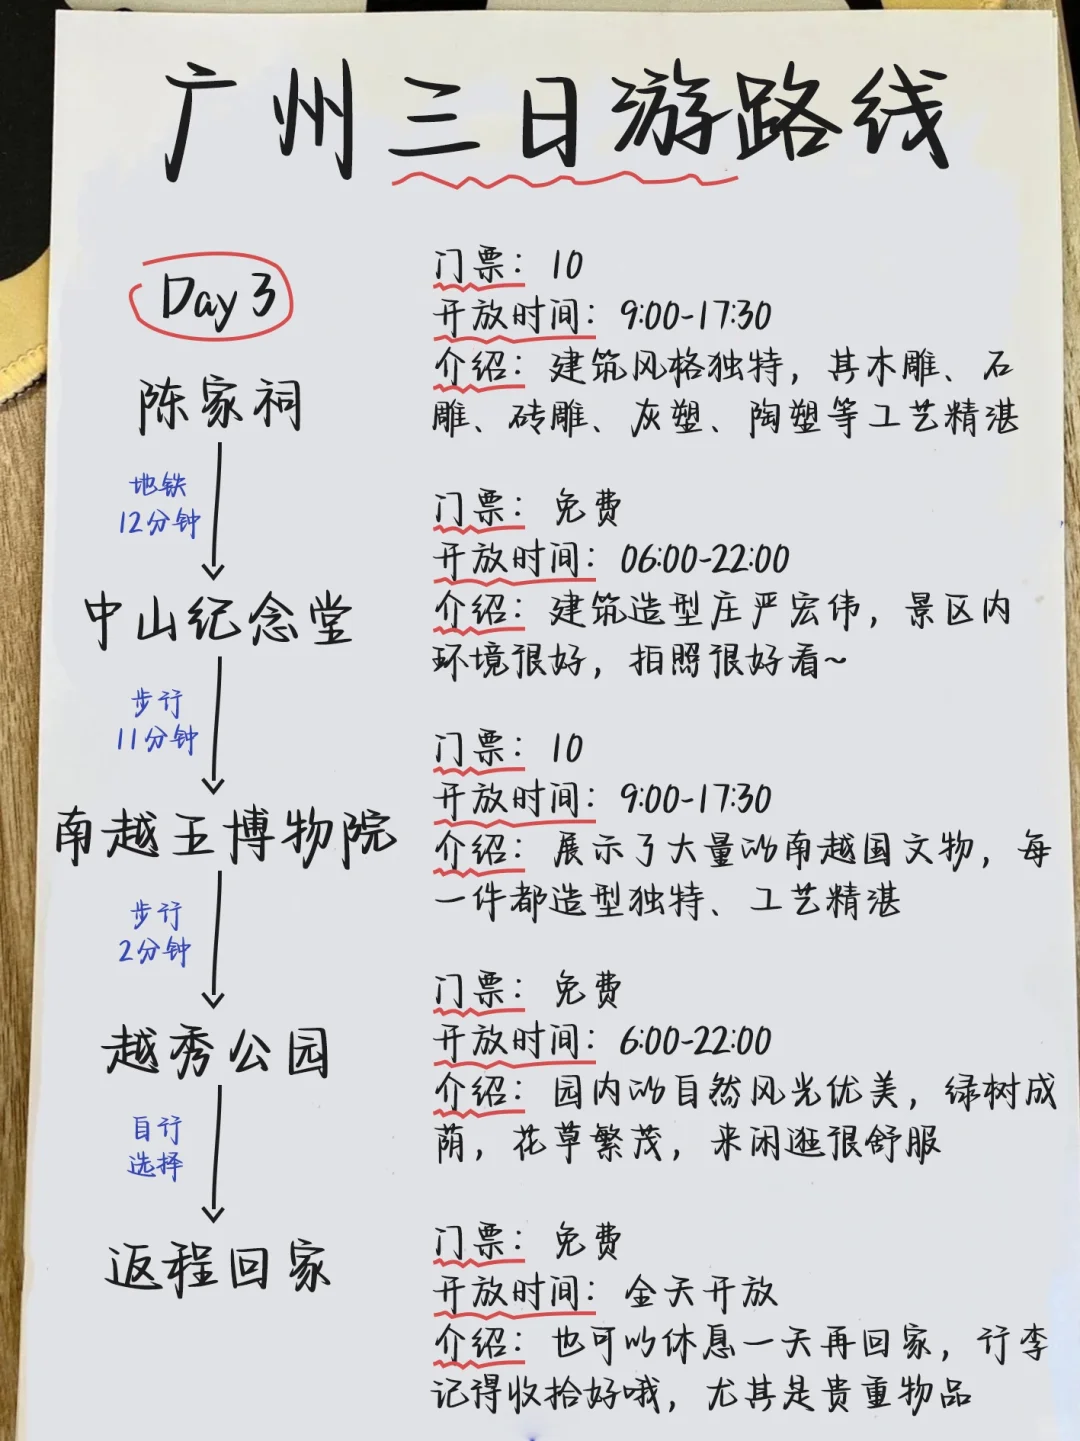 广州三日游路线
Day 3
陈家祠
门票：10
开放时间：9:00-17:30
介绍：建筑风格独特，其木雕、石
雕、砖雕、灰塑、陶塑等工艺精湛
地铁
12分钟
中山纪念堂
门票：免费
开放时间：06:00-22:00
介绍：建筑造型庄严宏伟，景区内
环境很好，拍照很好看~
步行
11分钟
南越王博物院
门票：10
开放时间：9:00-17:30
介绍：展示了大量的南越国文物，每
一件都造型独特、工艺精湛
步行
2分钟
越秀公园
门票：免费
开放时间：6:00-22:00
介绍：园内的自然风光优美，绿树成
荫，花草繁茂，来闲逛很舒服
自行
选择
返程回家
门票：免费
开放时间：全天开放
介绍：也可以休息一天再回家，行李
记得收拾好哦，尤其是贵重物品